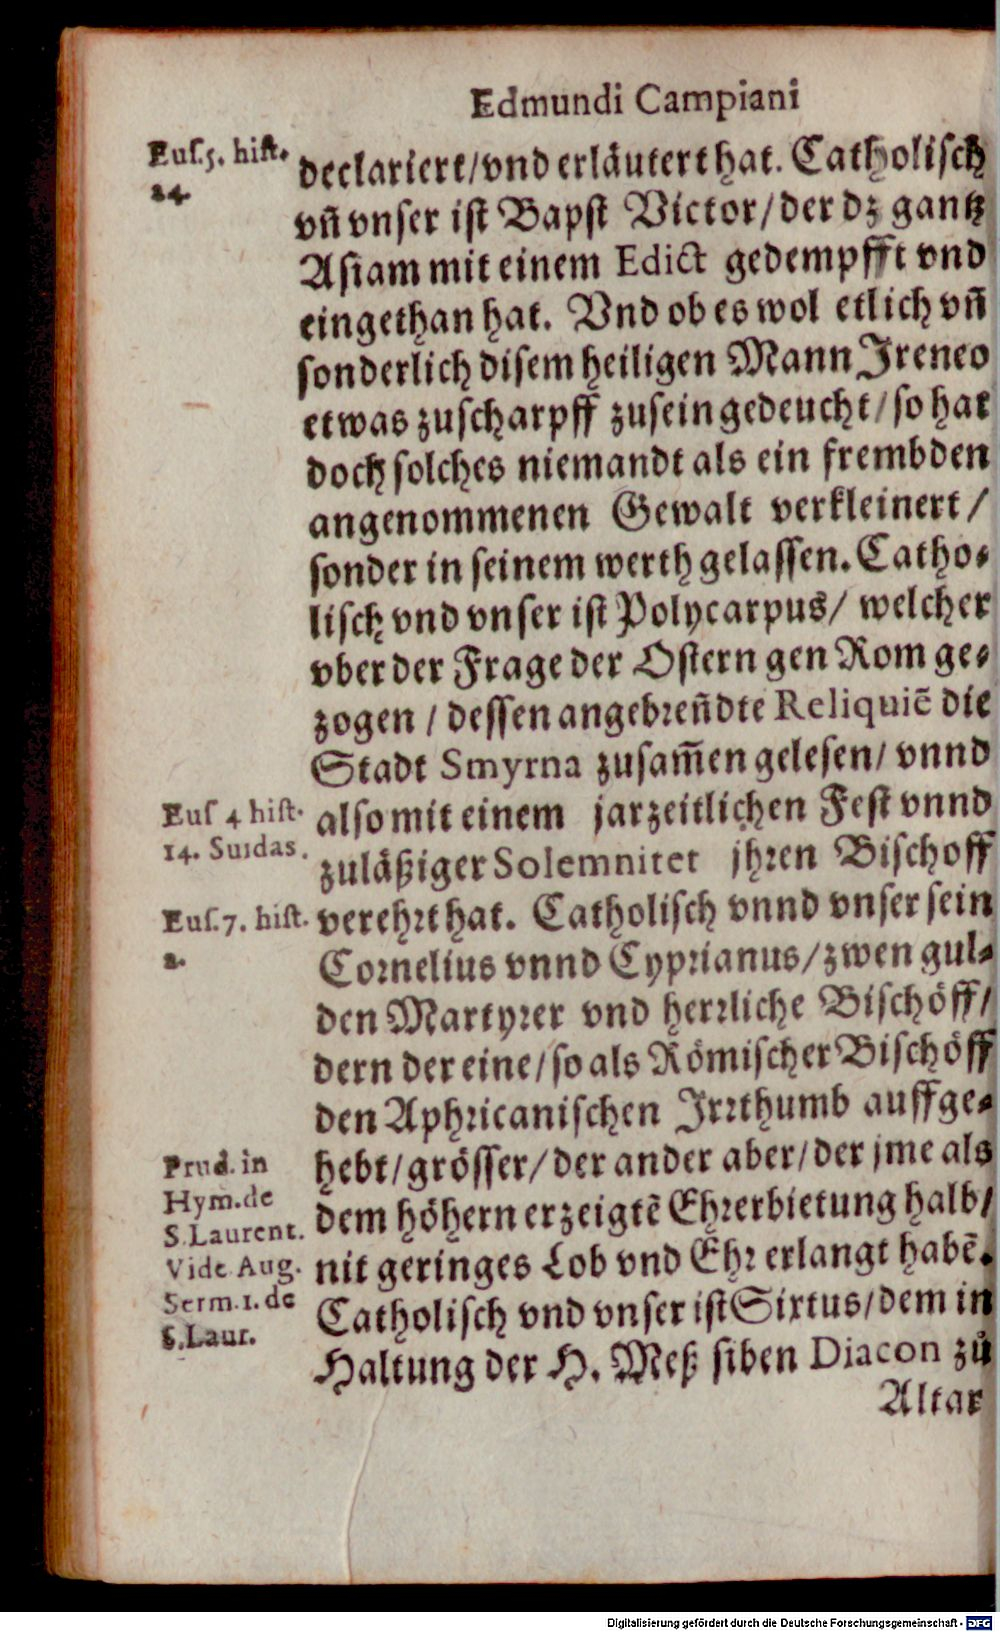 Edmundi Campiani
Euſ.5. hiſt.
24.
declariert/vnd erläutert hat. Catholiſch
vñ vnſer iſt Bapſt Victor/der dz gantz
Aſiam mit einem Edict gedempfft vnd
eingethan hat. Vnd ob es wol etlich vñ
ſonderlich diſem heiligen Mann Jreneo
etwas zuſcharpff zuſein gedeucht/ſo hat
doch ſolches niemandt als ein frembden
angenommenen Gewalt verkleinert/
ſonder in ſeinem werth gelaſſen. Catho⸗
liſch vnd vnſer iſt Polycarpus/ welcher
vber der Frage der Oſtern gen Rom ge⸗
zogen / deſſen angebreñdte Reliquiẽ die
Stadt Smyrna zuſam̃en geleſen/ vnnd
Euſ 4 hiſt.
14. Suidas.
alſo mit einem jarzeitlichen Feſt vnnd
zuläßiger Solemnitet jhren Biſchoff
Euſ.7. hiſt.
2.
verehrt hat. Catholiſch vnnd vnſer ſein
Cornelius vnnd Cyprianus/zwen gul⸗
den Martyrer vnd herrliche Biſchöff/
dern der eine/ſo als Römiſcher Biſchöff
den Aphricaniſchen Jrrthumb auffge⸗
Prud. in
Hym.de
S.Laurent.
Vide Aug.
Serm.1.de
S.Laur.
hebt/gröſſer/der ander aber/der jme als
dem höhern erzeigtẽ Ehrerbietung halb/
nit geringes Lob vnd Ehr erlangt habẽ.
Catholiſch vnd vnſer iſt Sixtus/dem in
Haltung der H. Meß ſiben Diacon zů
Altar
Digitalisierung gefördert durch die Deutsche Forschungsgemeinschaft - DFG